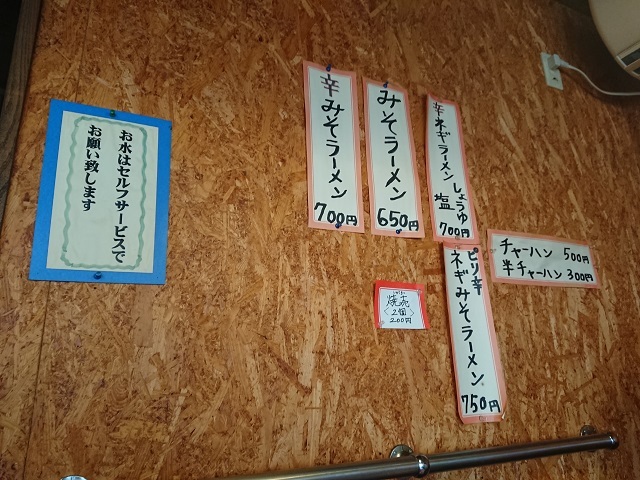 お水はセルフサービスで
お願い致します
辛みそラーメン
700円
みそラーメン
650円
辛ネギラーメン
しょうゆ
塩
700円
ピリ辛
ネギみそラーメン
750円
チャーハン 500円
半チャーハン 300円
焼売
〈2個〉
200円